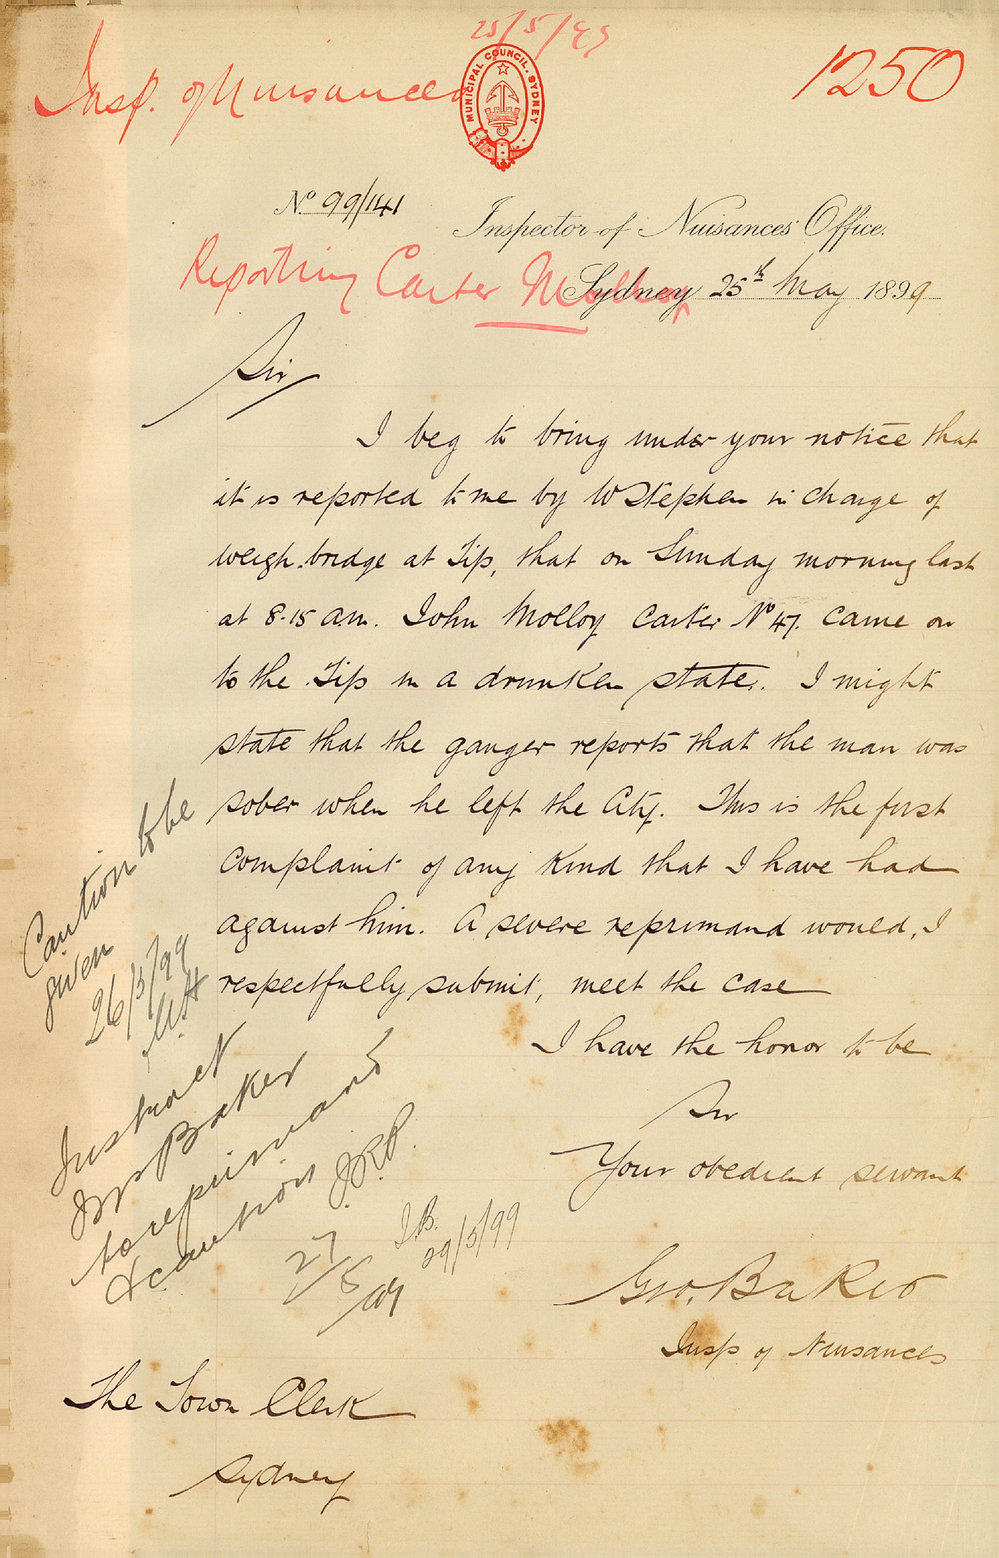 25/5/99
Insp. of Nuisances
1250
MUNICIPAL COUNCIL. SYDNEY
No. 99/141
Inspector of Nuisances' Office.
Reporting Carter Molloy
Sydney 25th May 1899
Sir
I beg to bring under your notice that
it is reported to me by W Stephen in charge of
weigh.bridge at Tip, that on Sunday morning last
at 8.15 am. John Molloy Carter No 47. came on
to the Tip in a drunken state. I might
state that the ganger reports that the man was
sober when he left the City. This is the first
complaint of any kind that I have had
against him. A severe reprimand would, I
respectfully submit, meet the case
I have the honor to be
Sir
Your obedient servant
Geo. Baker
Insp of Nuisances
Caution to be
given
26/5/99
Instruct
Insp Baker
to reprimand
& caution
27/5/99
29/5/99
The Town Clerk
Sydney